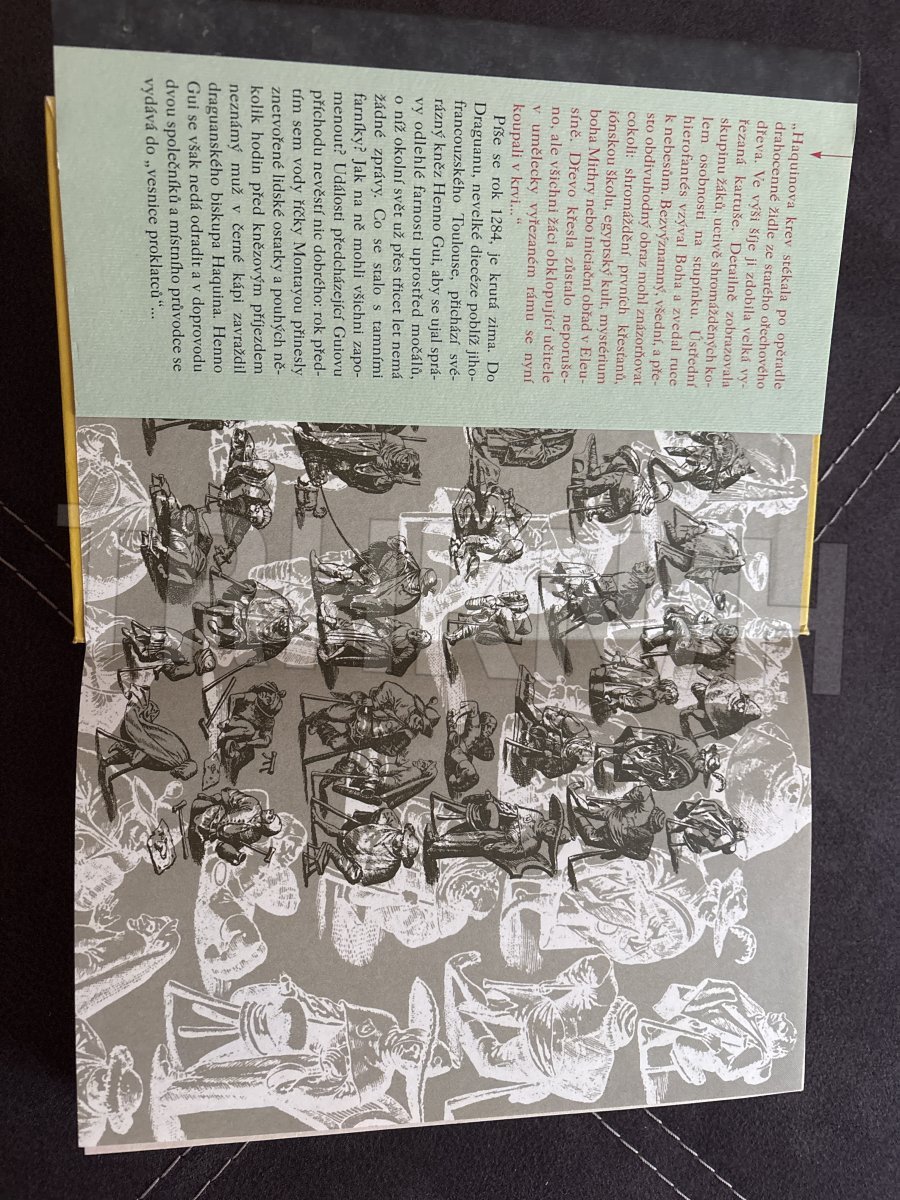 „Haquinova krev stékala po opěradle
drahocenné židle ze starého ořechového
dřeva. Ve výši šíje ji zdobila velká vy-
řezaná kartuše. Detailně zobrazovala
skupinu žáků, uctivě shromážděných ko-
lem osobnosti na stupínku. Ústřední
hierofantés vzýval Boha a zvedal ruce
k nebesům. Bezvýznamný, všední, a pře-
sto obdivuhodný obraz mohl znázorňovat
cokoli: shromáždění prvních křesťanů,
iónskou školu, egyptský kult, mystérium
boha Mithry nebo iniciační obřad v Eleu-
síně. Dřevo křesla zůstalo neporuše-
no, ale všichni žáci obklopující učitele
v umělecky vyřezaném rámu se nyní
koupali v krvi...“
Píše se rok 1284, je krutá zima. Do
Draguanu, nevelké diecéze poblíž jiho-
francouzského Toulouse, přichází své-
rázný kněz Henno Gui, aby se ujal sprá-
vy odlehlé farnosti uprostřed močálů,
o níž okolní svět už přes třicet let nemá
žádné zprávy. Co se stalo s tamními
farníky? Jak na ně mohli všichni zapo-
menout? Události předcházející Guiovu
příchodu nevěstí nic dobrého: rok před-
tím sem vody říčky Montayou přinesly
znetvořené lidské ostatky a pouhých ně-
kolik hodin před knězovým příjezdem
neznámý muž v černé kápi zavraždil
draguanského biskupa Haquina. Henno
Gui se však nedá odradit a v doprovodu
dvou společníků a místního průvodce se
vydává do „vesnice proklatců“...